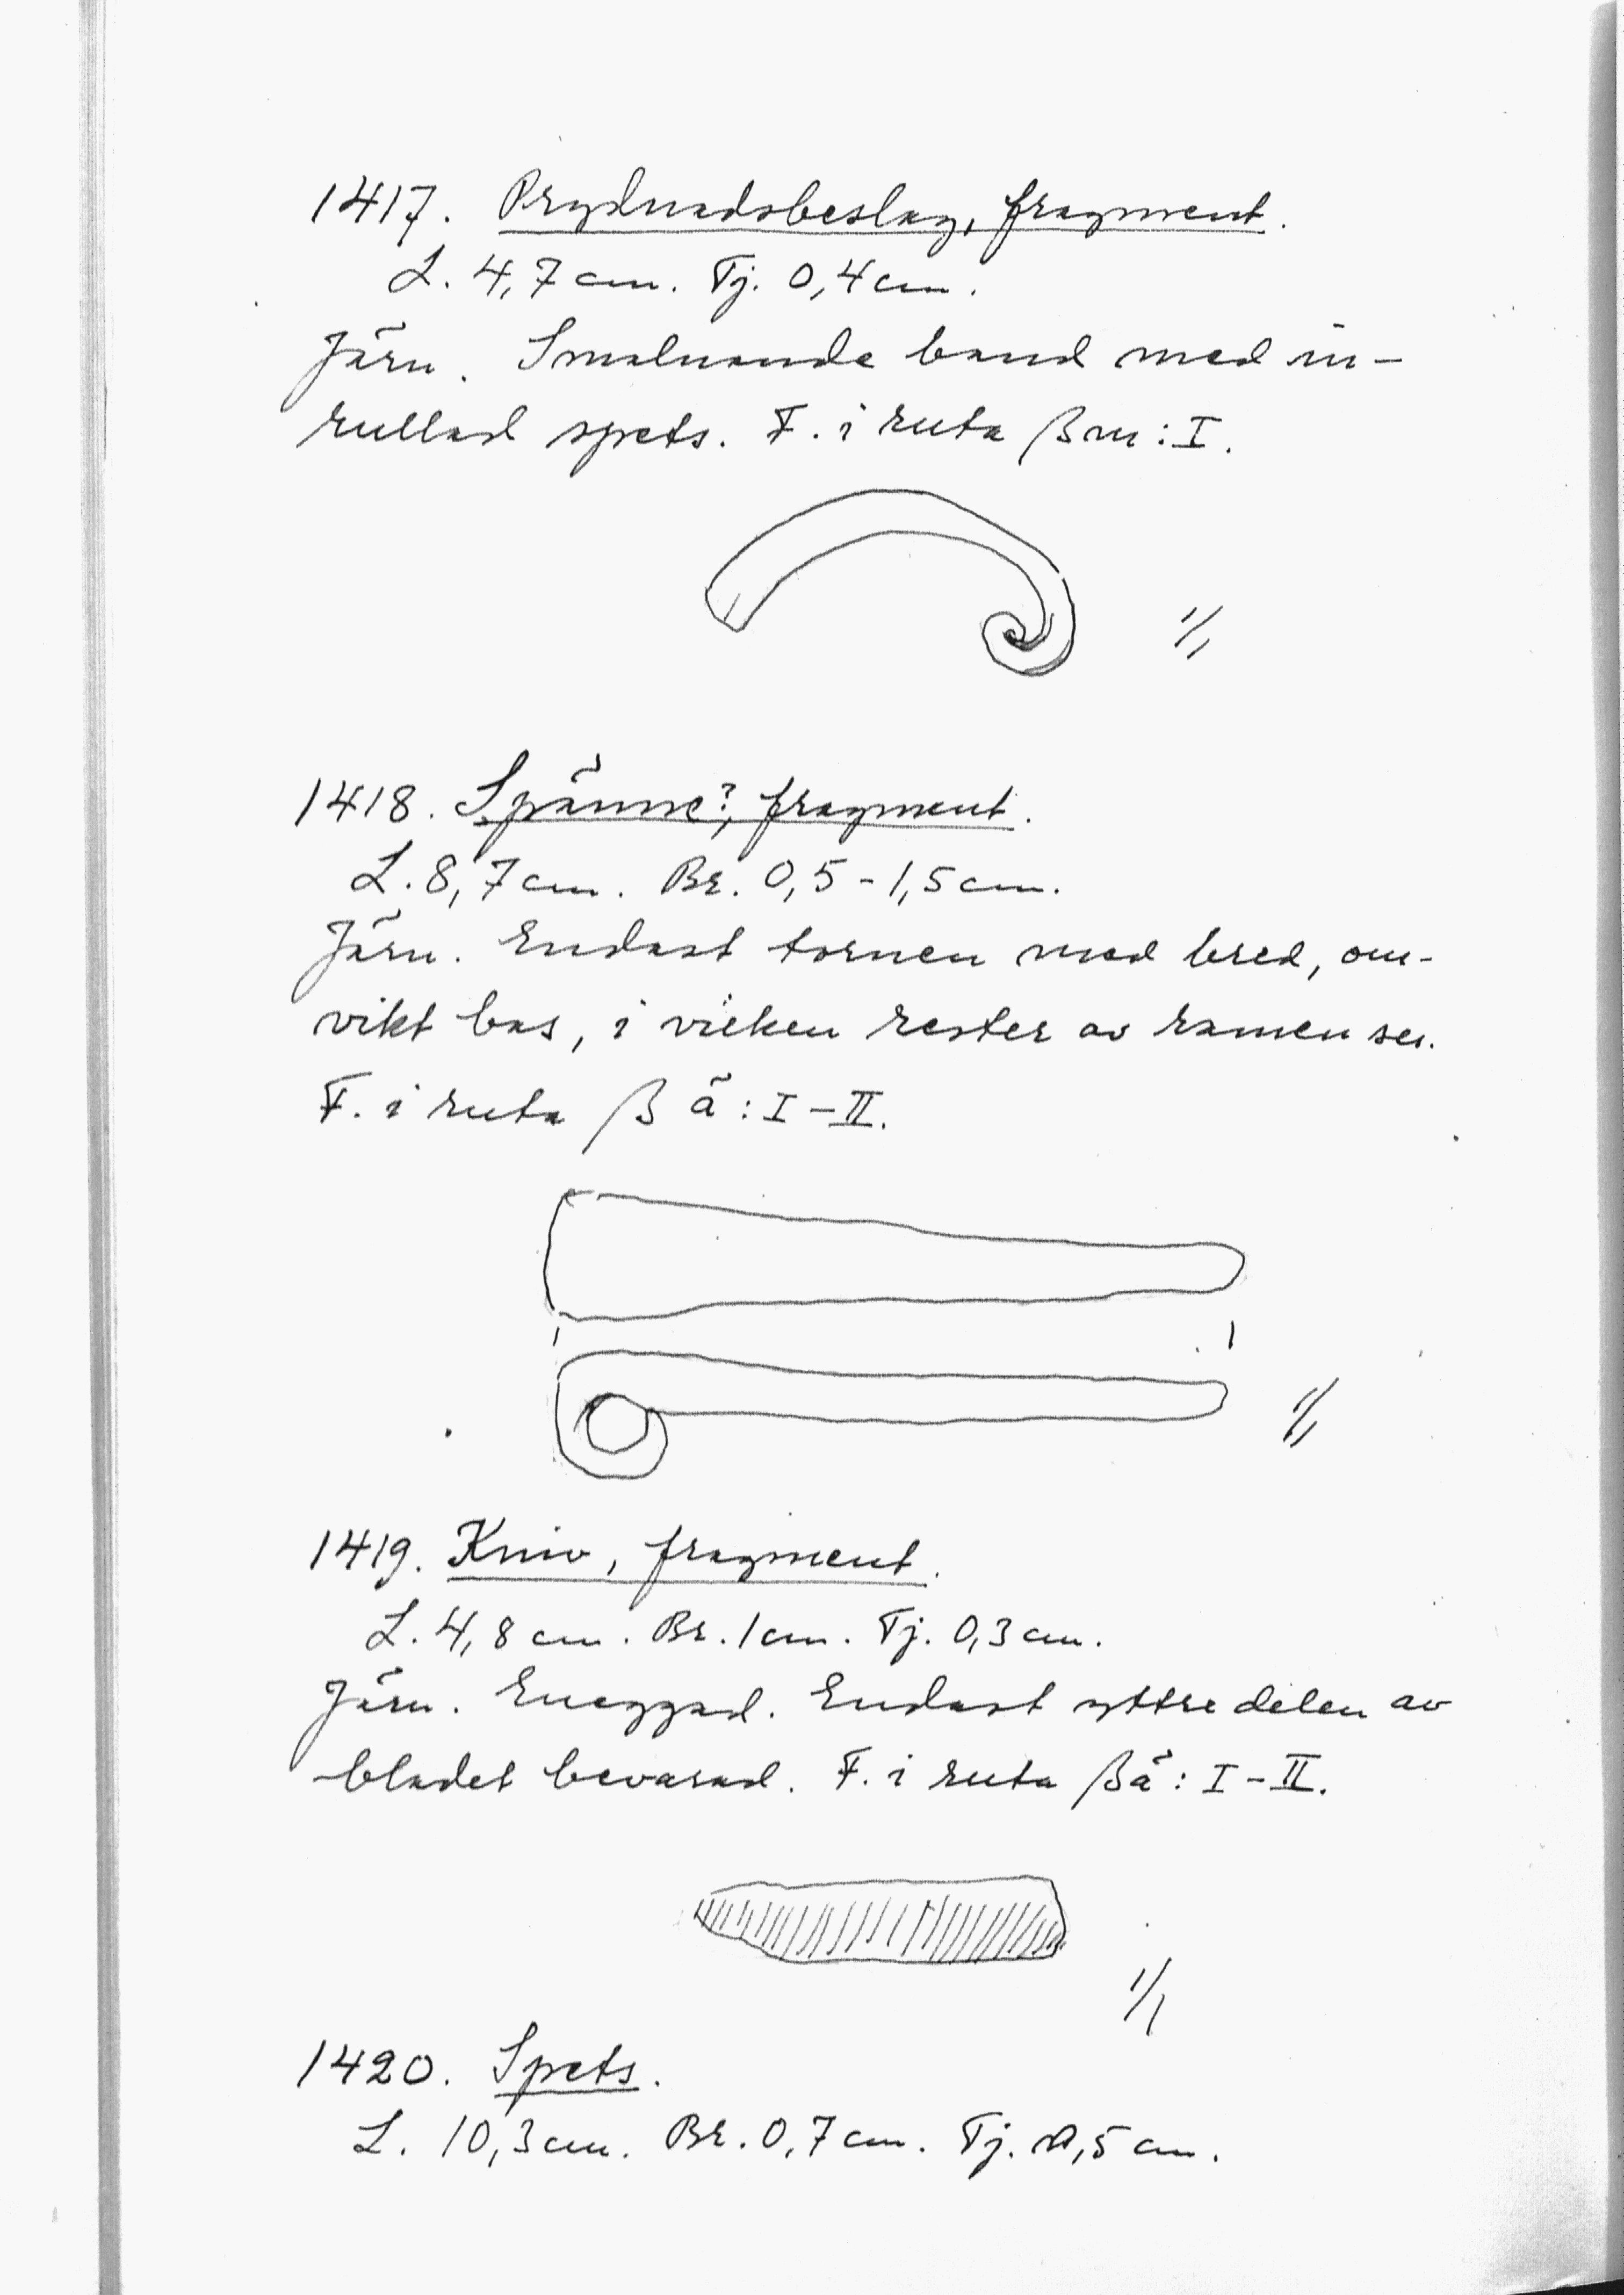 1417. Prydnadsbeslag, fragment.
L. 4,7 cm. Tj. 0,4 cm.
Järn. Smalnande band med in-
rullad spets. F. i ruta βm: I.
1/1
1418. Spänne?, fragment.
L. 8,7 cm. Br. 0,5 - 1,5 cm.
Järn. Endast tornen med bred, om-
vikt bas, i vilken rester av ramen ses.
F. i ruta β ä: I - II.
1/1
1419. Kniv, fragment.
L. 4,8 cm. Br. 1 cm. Tj. 0,3 cm.
Järn. Eneggad. Endast yttre delen av
bladet bevarad. F. i ruta βä: I - II.
1/1
1420. Spets.
L. 10,3 cm. Br. 0,7 cm. Tj. 0,5 cm.